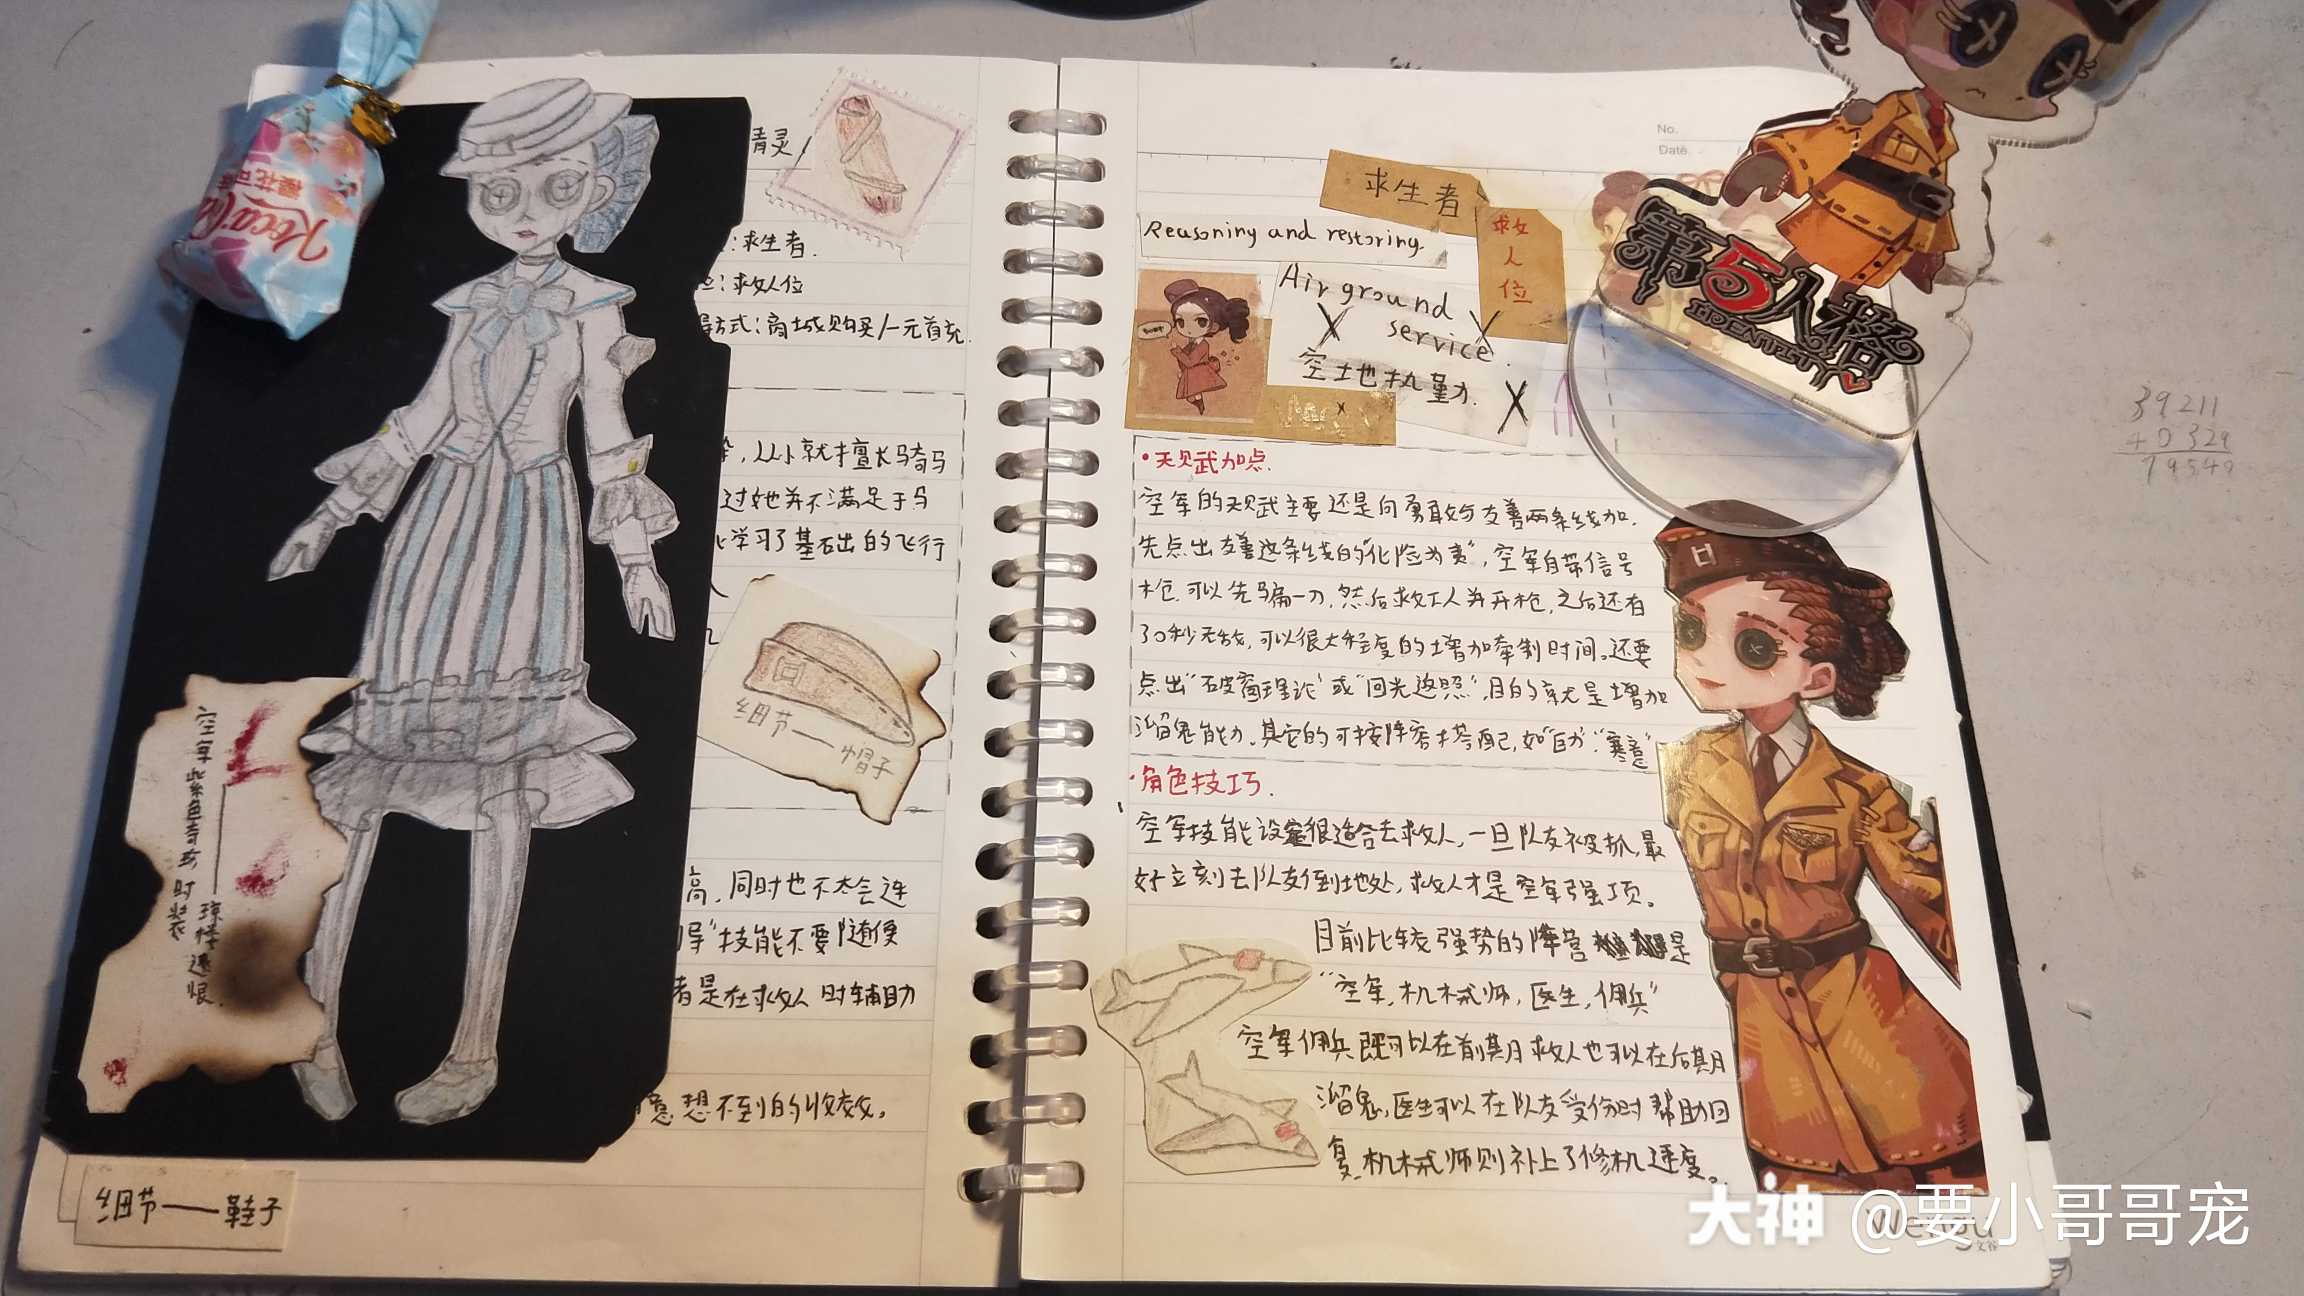 青灵
:求生者.
:救人位
方式:商城购买/一元首充.
,从小就擅长骑马
过她并不满足于马
学习了基础的飞行
人
细节——帽子
高,同时也不太会连
"技能不要随便
者是在救人时辅助
意想不到的收效。
空军紫色奇珍时装
——琼楼遗恨.
细节——鞋子
Koca
樱花可
No.
Date.
求生者
救人位
Reasoning and restoring.
Air ground
service.
空地执勤.
第5人格
IDENTITY
•天赋加点.
空军的天赋主要还是向勇敢与友善两条线加.
先点出友善这条线的"化险为夷",空军自带信号
枪.可以先骗一刀,然后救下人并开枪,之后还有
30秒无敌,可以很大程度的增加牵制时间。还要
点出"破窗理论"或"回光返照",目的就是增加
溜鬼能力.其它的可按阵容搭配,如"自"."寒意"
•角色技巧.
空军技能设定很适合去救人,一旦队友被抓,最
好立刻去队友倒地处,救人才是空军强项。
目前比较强势的阵营是
"空军,机械师,医生,佣兵"
空军佣兵既可以在前期救人也可以在后期
溜鬼.医生可以在队友受伤时帮助回
复.机械师则补上了修机速度。
39211
+40329
79549
Wengu
文谷
大神 @要小哥哥宠